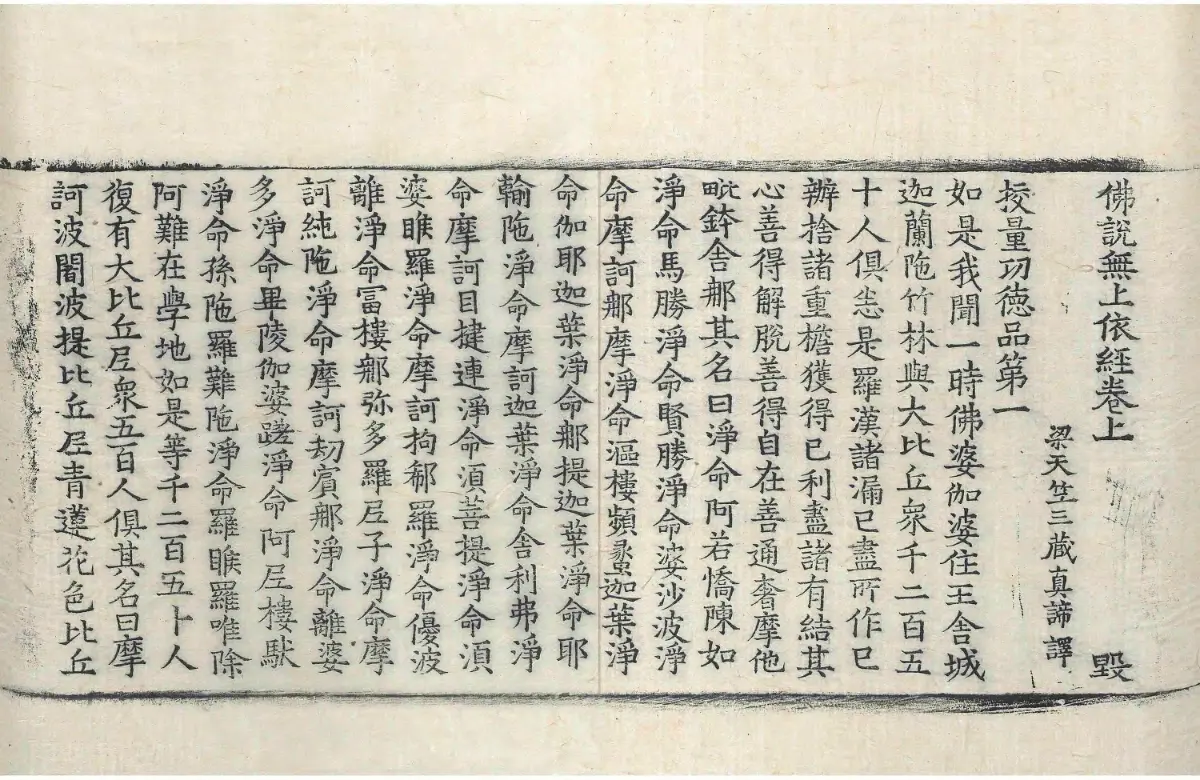 佛說無上依經卷上 毀
梁天竺三藏真諦譯
挍量功德品第一
如是我聞一時佛婆伽婆住王舍城
迦蘭陁竹林與大比丘衆千二百五
十人俱悉是羅漢諸漏已盡所作已
辦捨諸重檐獲得已利盡諸有結其
心善得解脫善得自在善通奢摩他
毗鉢舍那其名曰淨命阿若憍陳如
淨命馬勝淨命賢勝淨命婆沙波淨
命摩訶那摩淨命漚樓頻蠡迦葉淨
命伽耶迦葉淨命那提迦葉淨命耶
輸陁淨命摩訶迦葉淨命舍利弗淨
命摩訶目揵連淨命須菩提淨命須
婆睺羅淨命摩訶拘郗羅淨命優波
離淨命冨樓那弥多羅尼子淨命摩
訶純陁淨命摩訶劫賓那淨命離婆
多淨命畢陵伽婆蹉淨命阿尼樓馱
淨命孫陁羅難陁淨命羅睺羅唯除
阿難在學地如是等千二百五十人
復有大比丘尼衆五百人俱其名曰摩
訶波闍波提比丘尼青蓮花色比丘